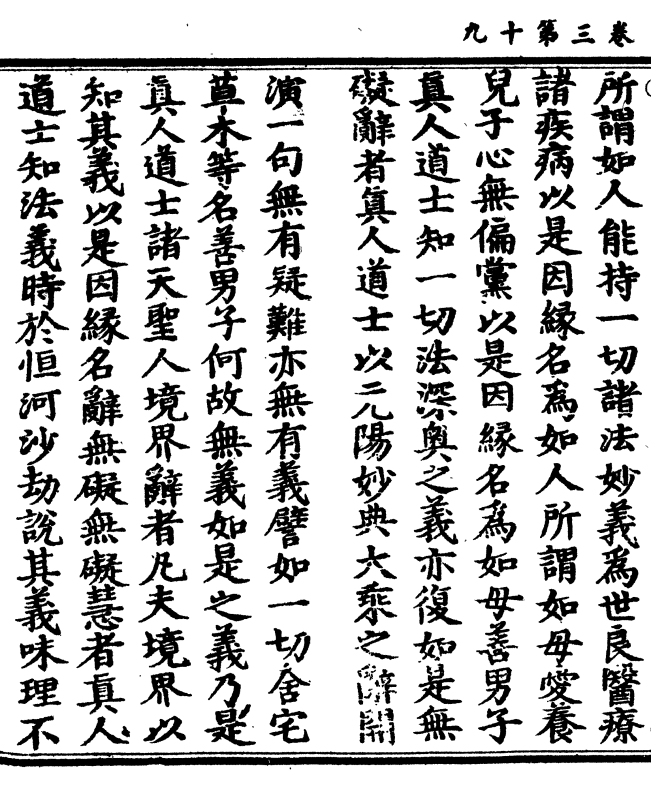 卷三第十九
所謂如人能持一切諸法妙義爲世良醫療
諸疾病以是因緣名爲如人所謂如母愛養
兒子心無偏黨以是因緣名爲如母善男子
眞人道士知一切法深奧之義亦復如是無
礙辭者眞人道士以元陽妙典大乘之辭開
演一句無有疑難亦無有義譬如一切舍宅
草木等名善男子何故無義如是之義乃是
眞人道士諸天聖人境界辭者凡夫境界以
知其義以是因緣名辭無礙無礙慧者眞人
道士知法義時於恒河沙劫說其義味理不